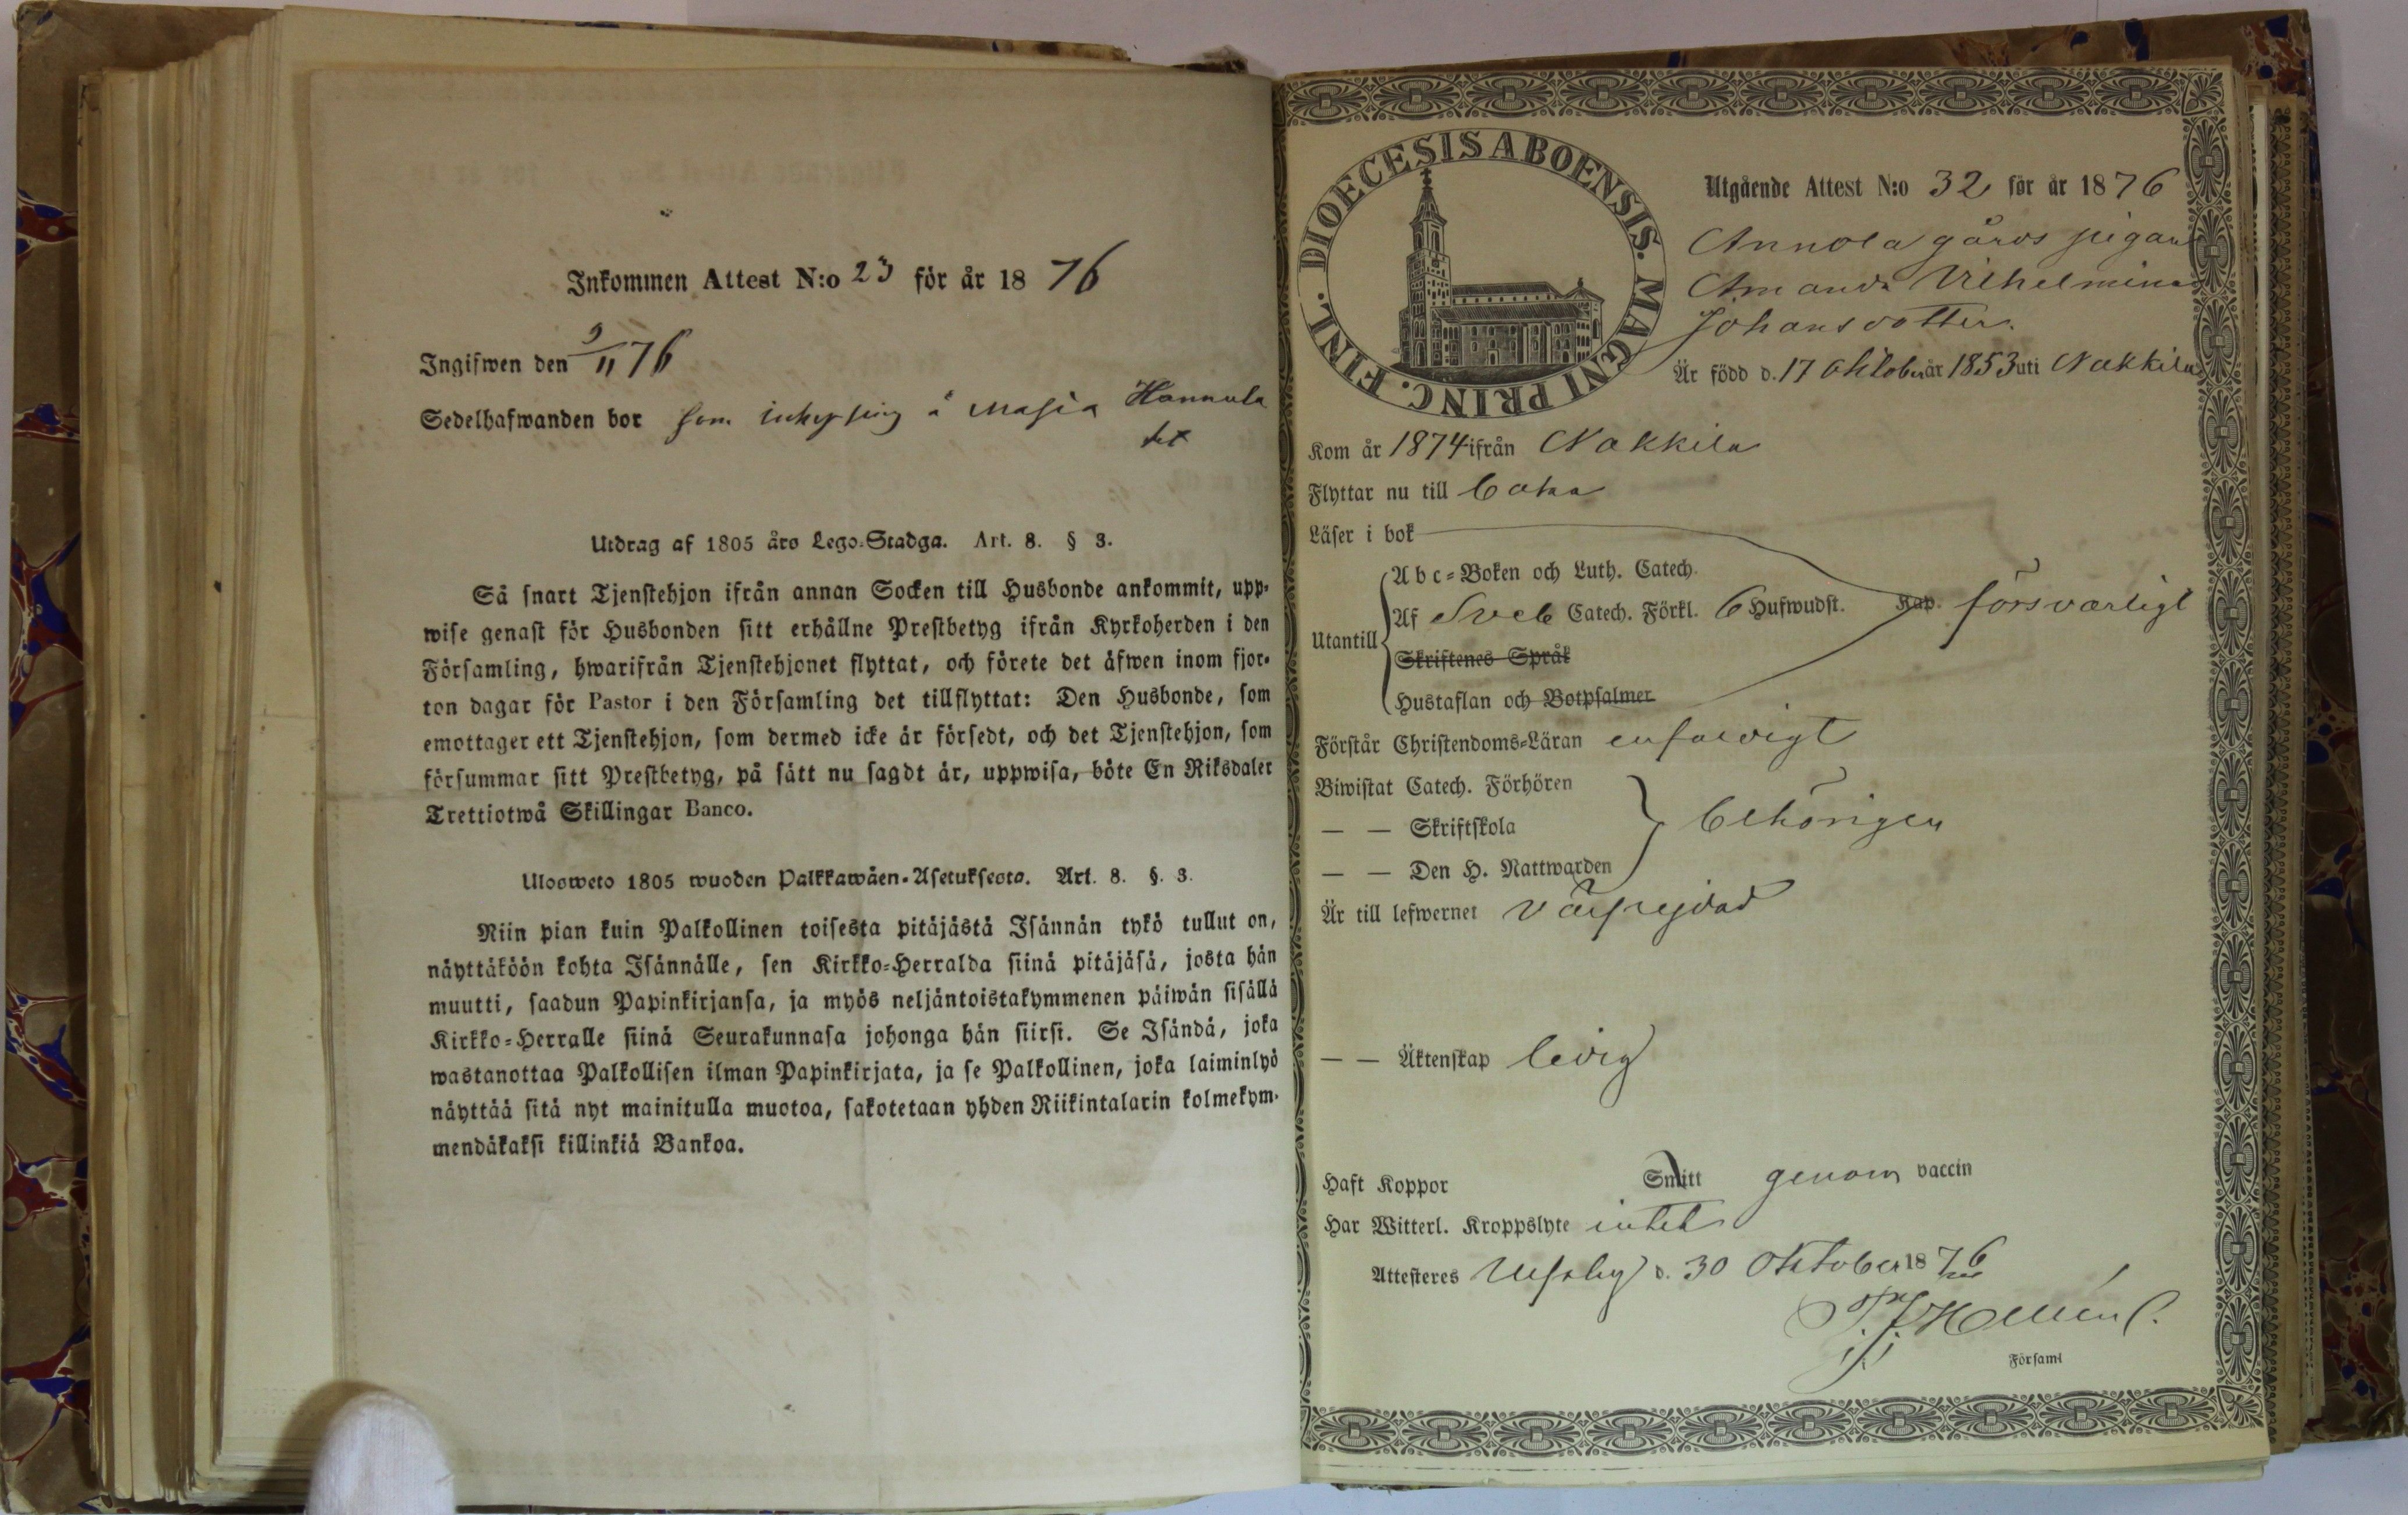 Inkommen Attest N:o 23 för år 1876
Ingifwen den 9/11 76
Sedelhafwanden bor som inhysing å Masia Hannula
Utdrag af 1805 års Lego-Stadga. Art. 8. § 3.
Så snart Tjenstehjon ifrån annan Socken till Husbonde ankommit, upp-
wise genast för Husbonden sitt erhållne Prestbetyg ifrån Kyrkoherden i den
Församling, hwarifrån Tjenstehjonet flyttat, och förete det äfwen inom fjor-
ton dagar för Pastor i den Församling det tillflyttat: Den Husbonde, som
emottager ett Tjenstehjon, som dermed icke är försedt, och det Tjenstehjon, som
försummar sitt Prestbetyg, på sätt nu sagdt är, uppwisa, böte En Riksdaler
Trettiotwå Skillingar Banco.
Ulosweto 1805 wuoden Palkkawäen-Asetuksesta. Art. 8. §. 3.
Niin pian kuin Palkollinen toisesta pitäjästä Isännän tykö tullut on,
näyttäköön kohta Isännälle, sen Kirkko-Herralda siinä pitäjäsä, josta hän
muutti, saadun Papinkirjansa, ja myös neljäntoistakymmenen päiwän sisällä
Kirkko-Herralle siinä Seurakunnasa johonga hän siirsi. Se Isändä, joka
wastanottaa Palkollisen ilman Papinkirjata, ja se Palkollinen, joka laiminlyö
näyttää sitä nyt mainitulla muotoa, sakotetaan yhden Riikintalarin kolmekym-
mendäkaksi killinkiä Bankoa.
DIOECESIS ABOENSIS. MAGNI PRINC. FINL.
Utgående Attest N:o 32 för år 1876
Annola gårds pigan
Amanda Vilhelmina
Johansdotter.
Är född d. 17 Oktober år 1853 uti Nakkila
Kom år 1874 ifrån Nakkila
Flyttar nu till
Läser i bok
Abc-Boken och Luth. Catech.
Utantill Af Sveb Catech. Förkl. 6 Hufwudst. Kap. försvarligt
Skriftenes Språk
Hustaflan och Botpsalmer
Förstår Christendoms-Läran enfaldigt
Biwistat Catech. Förhören
— — Skriftskola behörigen
— — Den H. Nattwarden
Är till lefwernet välfrejdad
— — Äktenskap ledig
Haft Koppor Smitt genom vaccin
Har Witterl. Kroppslyte intet
Attesteres Ulfsby d. 30 Oktober 1876
Församl